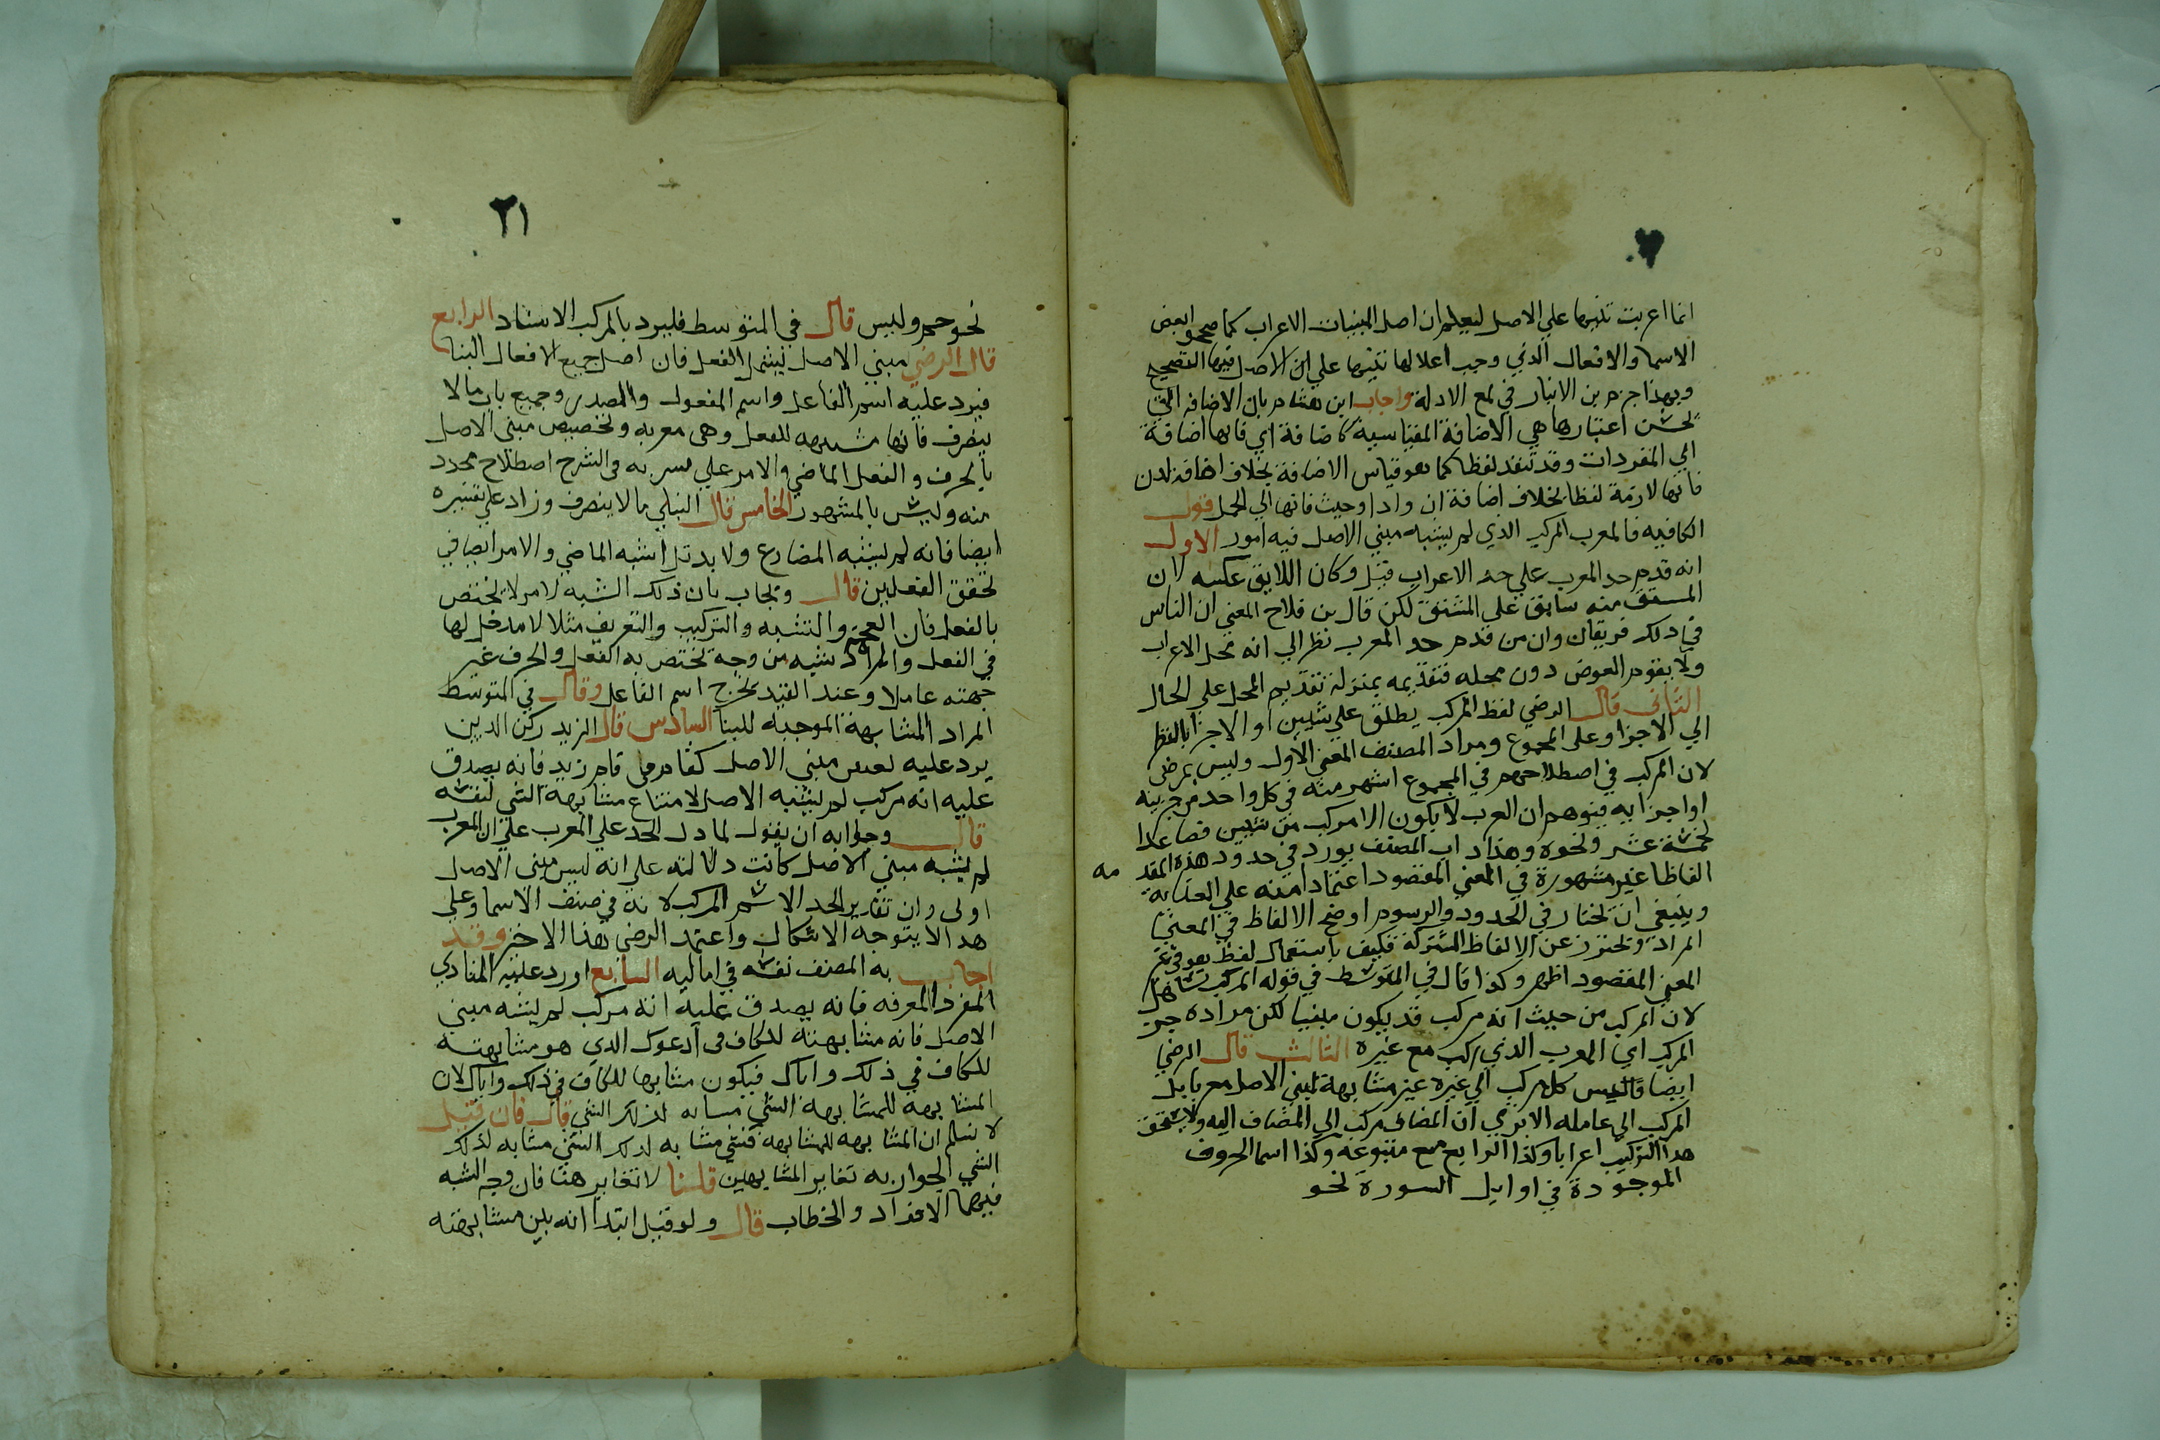 ٢٠
انما اعربت تنبيها علي الاصل ليعلم ان اصل المبنيات الاعراب كما صححوا بعض
الاسما والافعال الذي وجب اعلالها تنبيها علي ان الاصل فيها التصحيح
وبهذا جزم بن الانبار في لمع الادلة واجاب ابن هشام بان الاضافه التي
يحسن اعتبارها هي الاضافة المقياسية كاضافة اي فانها اضافة
الي المفردات وقد تنفد لفظا كما هو قياس الاضافة بخلاف اضافة لدن
فانها لازمة لفظا بخلاف اضافة ان واذا وحيث فانها الي الجمل قول
الكافيه فالمعرب المركب الذي لم يشبه مبني الاصل فيه امور الاول
انه قدم حد المعرب علي حد الاعراب قيل وكان اللايق عكسه لان
المستق منه سابق علي المشتق لكن قال بن فلاح المغني ان الناس
في ذلك فريقان وان من قدم حد المعرب نظر الي انه محل الاعراب
ولا يقوم العوض دون محله فتقديمه بمنزلة تقديم المحل علي الحال
الثاني قال الرضي لفظ المركب يطلق علي شيين او الاجزا بالنظر
الي الاجزا وعلى المجموع ومراد المصنف المعني الاول وليس بمرضي
لان المركب في اصطلاحهم في المجموع اشهر منه في كل واحد من جزييه
او اجزايه فيوهم ان العرب لا يكون الا مركب من شيين فصاعدا
كخمسة عشر ونحوه وهذا داب المصنف يورد في حدود هذه المقد مه
الفاظا غير مشهورة في المعني المقصود اعتمادا منه علي العنايه
وينبغي ان يختار في الحدود والرسوم اوضح الالفاظ في المعني
المراد ويحترز عن الالفاظ المشتركة فكيف باستعمال لفظ هو في غير
المعني المقصود اظهر وكذا قال في المتوسط في قوله المركب تساهل
لان المركب من حيث انه مركب قد يكون مبنيا لكن مراده جز
المركب اي المعرب الذي ركب مع غيره الثالث قال الرضي
ايضا فاليس كل مركب الي غيره غير مشابهة لمبني الاصل معربا بل
المركب الي عامله الاتري ان المضاف مركب الي المضاف اليه ولا يستحق
هدا التركيب اعرابا وكذا التوابع مع متبوعه وكذا اسما الحروف
الموجودة في اوايل السورة نحو
٢١
نحو حم وليس قال في المتوسط فليرد بالمركب الاسناد الرابع
قال الرضي مبني الاصل ليشمل الفعل فان اصل جميع الافعال البنا
فيرد عليه اسم الفاعل واسم المفعول والمصدر وجميع باب مالا
ينصرف فانها مشبهه للفعل وهى معربه وتخصيص مبني الاصل
بالحرف والفعل الماضي والامر علي فسر به في الشرح اصطلاح مجدد
منه وليس بالمشهور الخامس قال النيلي مالا ينصرف وزاد علي تفسيره
ايضا فانه لم يشبه المضارع ولا بد تل اشبه الماضي والامر ايضا في
تحقق الفعلين قال ويجاب بان ذلك الشبه لامر لا يختص
بالفعل فان العجمة والتشبه والتركيب والتعريف مثلا لا مدخل لها
في الفعل والمراد يشبه من وجه يختص به الفعل والحرف غير
جهته عاملا وعند القيد يخرج اسم الفاعل وقال في المتوسط
المراد المشابهة الموجبه للبنا السادس قال الزيد ركن الدين
يرد عليه بعض مبني الاصل كقام من قام زيد فانه يصدق
عليه انه مركب لم يشبه الاصل لامتناع مشابهة الشي لنفسه
قال وجوابه ان يقول لما دل الحد علي المعرب علي ان المعرب
لم يشبه مبني الاصل كانت دلالته على انه ليس مبني الاصل
اولي وان تقدير الحد الاسم المركب لانه في صنف الاسما وعلي
هدا لا يتوجه الاشكال واعتمد الرضي هذا الاخير وقد
اجاب به المصنف نفسه في اماليه السابع اورد عليه المنادي
المفرد المعرفه فانه يصدق عليه انه مركب لم يشبه مبني
الاصل فانه مشابهته للكاف في ادعوك الذي هو مشابهته
للكاف في ذلك واياك فيكون مشابها للكاف في ذلك واياك لان
المشابهه للمشابهة الشي مشابه لذلك الشي قال فان قيل
لا نسلم ان المشابهه للمشابهة فشي مشابه لذلك الشي مشابه لذلك
الشي لجواز به تغاير المشابهين قلنا لا تغاير هنا فان وجه الشبه
فيهما الافراد والخطاب قال ولو قيل ابتدا انه بين مشابهته